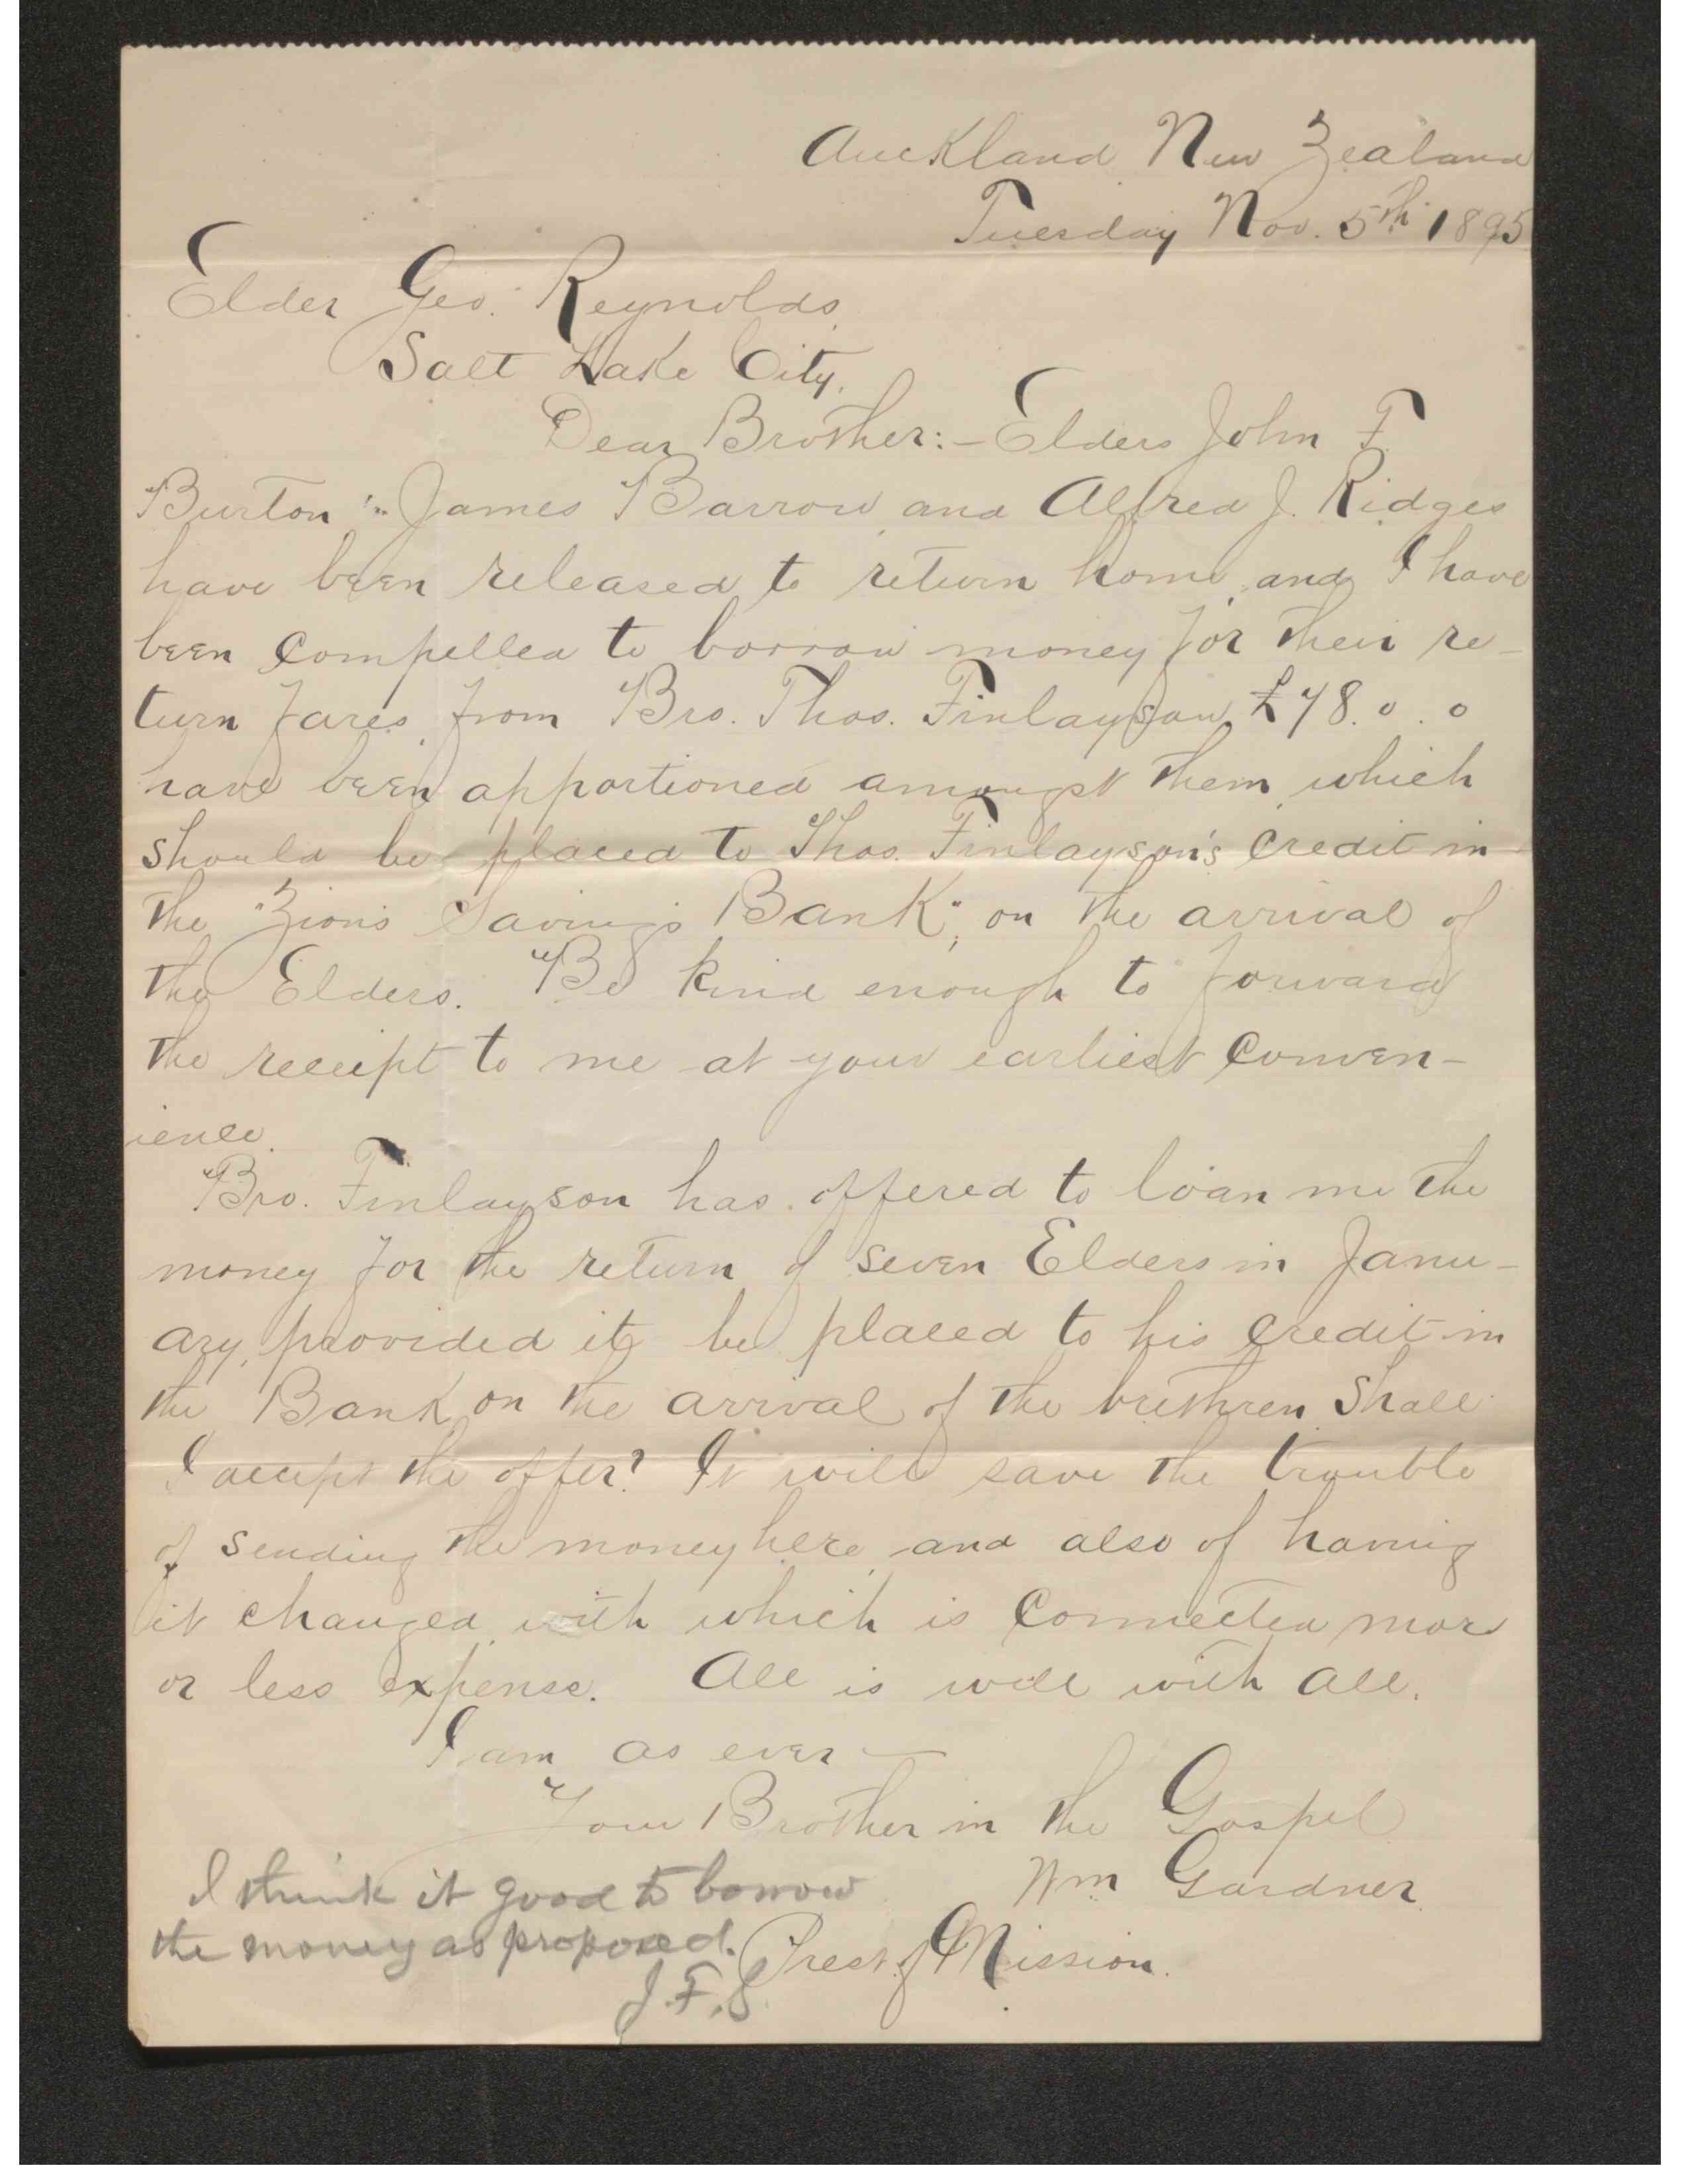 Auckland New Zealand
Tuesday Nov. 5th 1895
Elder Geo. Reynolds
Salt Lake City.
Dear Brother:- Elders John F.
Burton James Barrow and Alfred J. Ridges
have been released to return home, and I have
been compelled to borrow money for their re-
turn fares from Bro. Thos. Finlayson, £78.0.0
have been apportioned amongst them, which
should be placed to Thos. Finlayson's credit in
the "Zion's Savings Bank", on the arrival of
the Elders. Be kind enough to forward
the receipt to me at your earliest conven-
ience.
Bro. Finlayson has offered to loan me the
money for the return of seven Elders in Janu-
ary, provided it be placed to his credit in
the Bank on the arrival of the brethren. Shall
I accept the offer? It will save the trouble
of sending the money here, and also of having
it changed, with which is connected more
or less expense. All is well with all.
I am as ever—
Your Brother in the Gospel
Wm Gardner
Prest. of Mission.
I think it good to borrow
the money as proposed.
J.F.S.